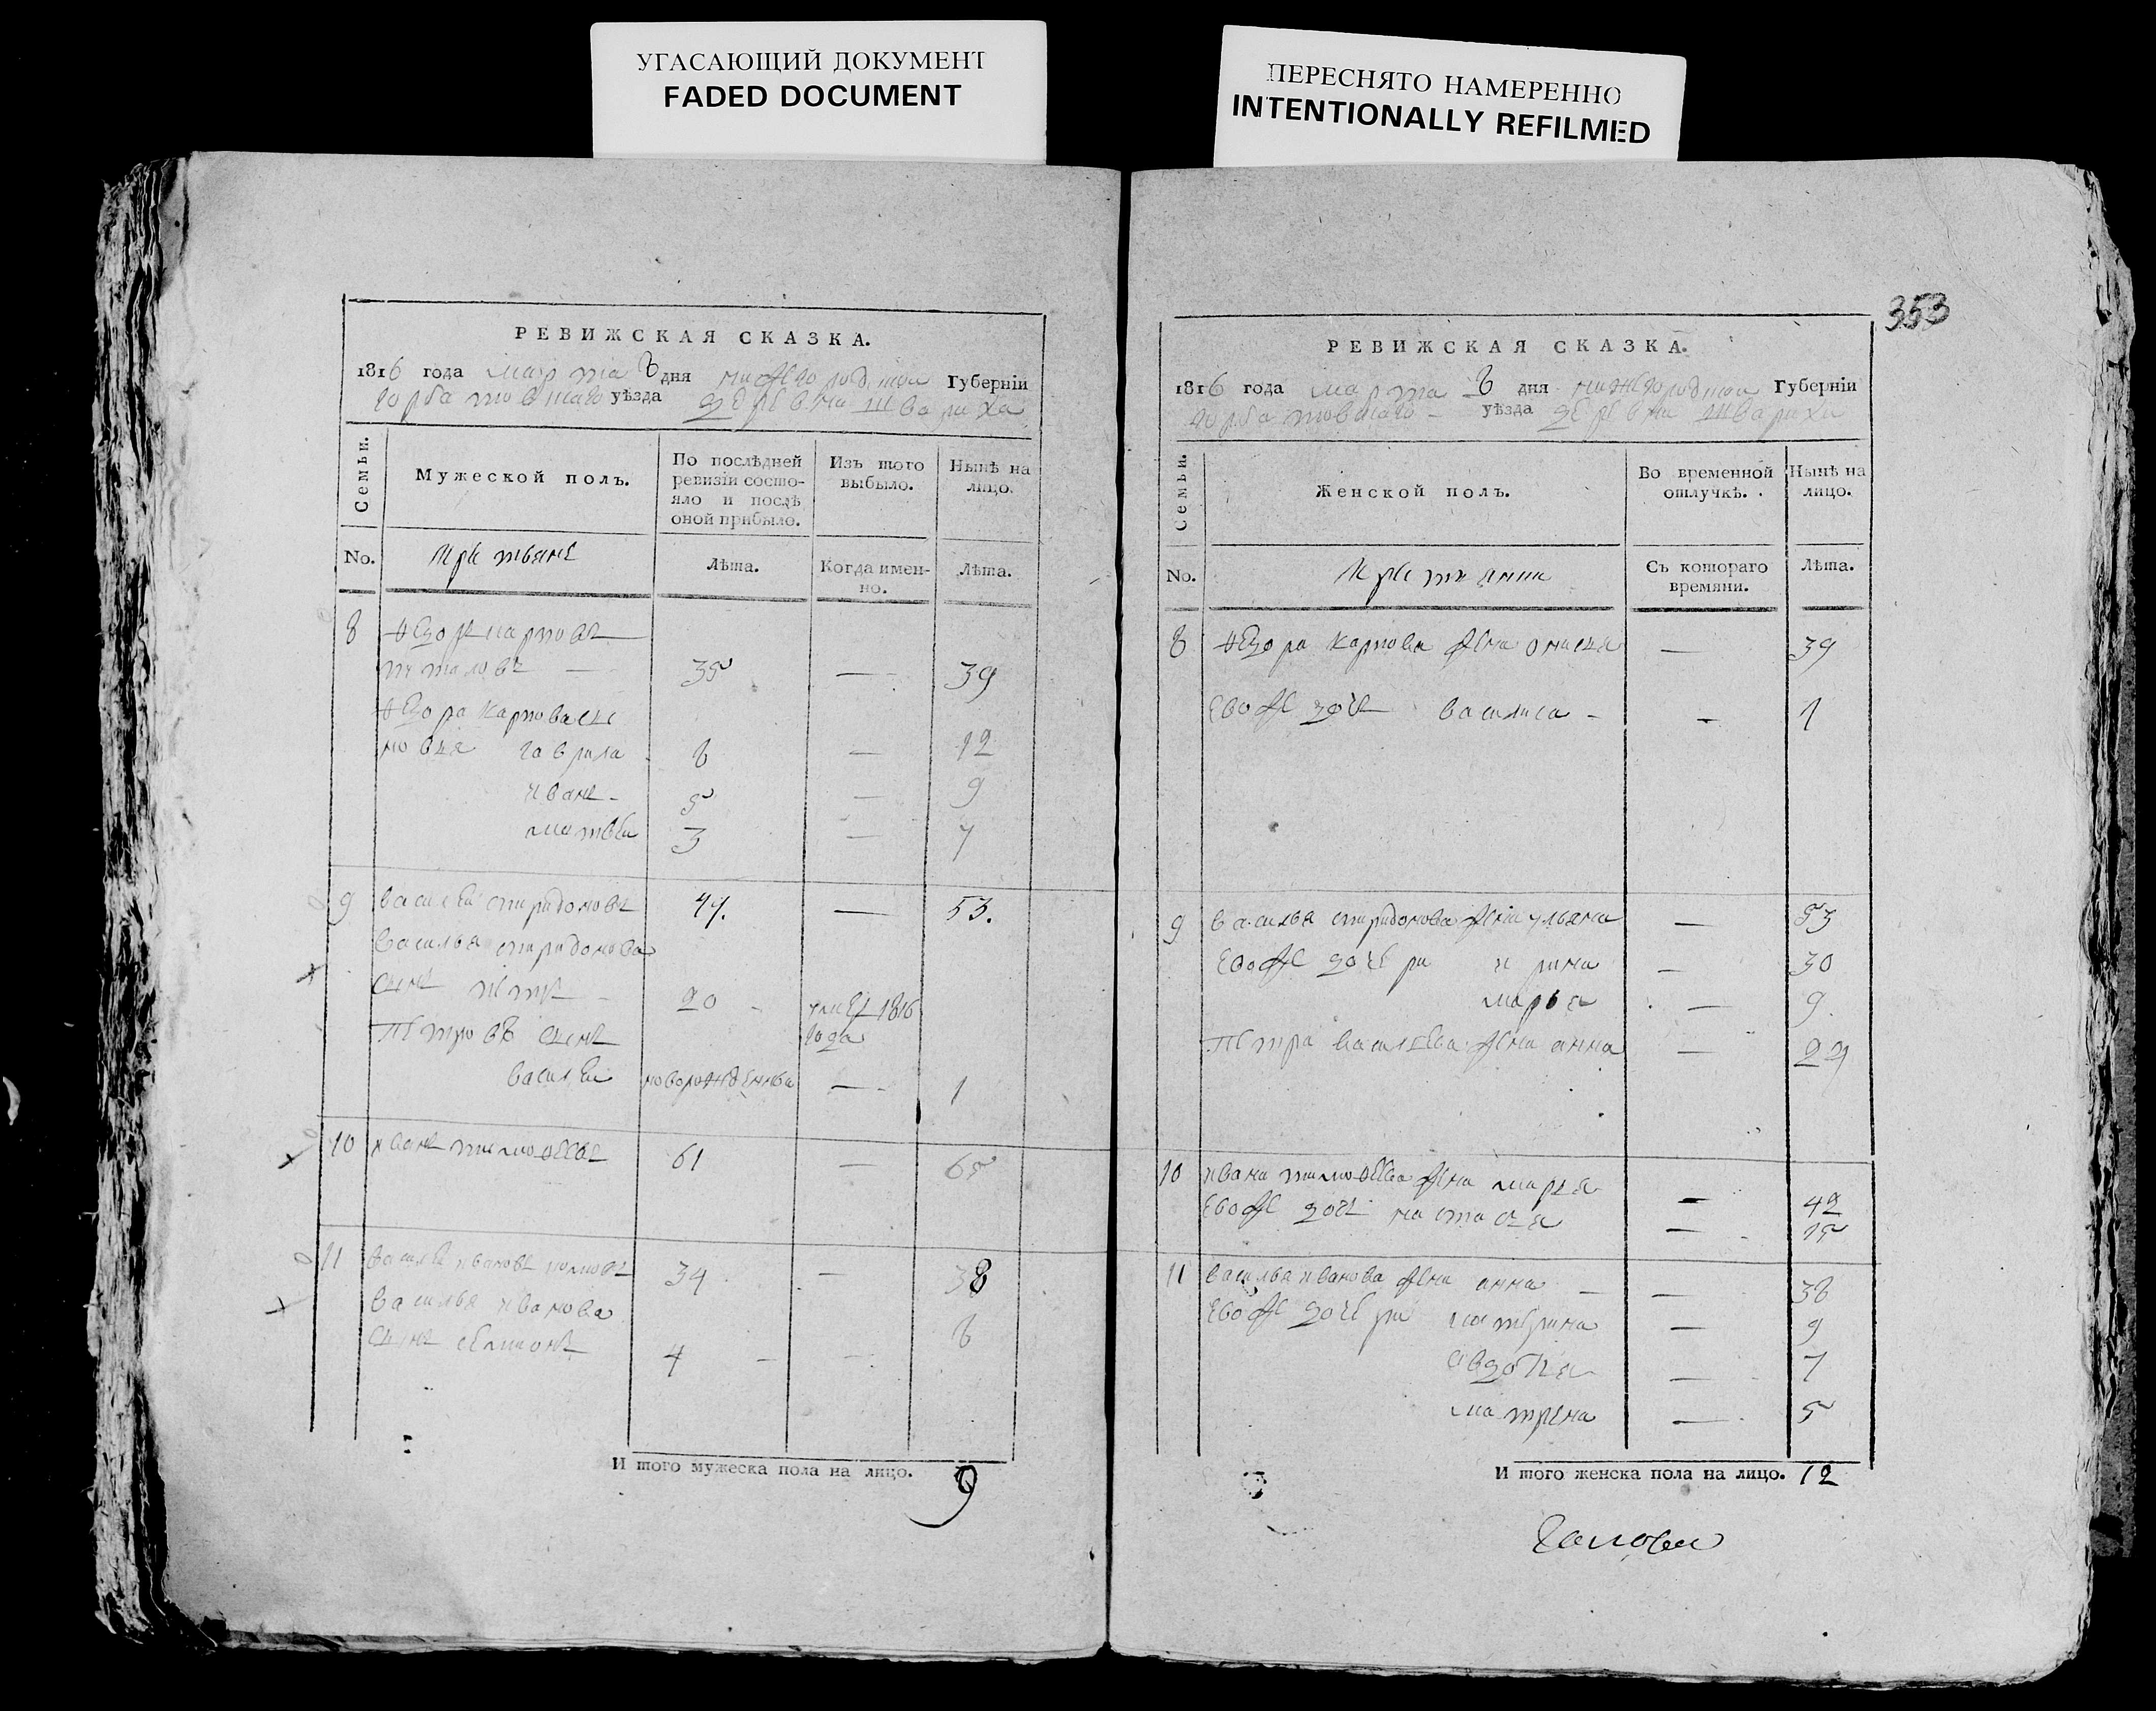 УГАСАЮЩИЙ ДОКУМЕНТ
FADED DOCUMENT
ПЕРЕСНЯТО НАМЕРЕННО
INTENTIONALLY REFILMED
РЕВИЖСКАЯ СКАЗКА.
1816 года марта 8 дня нижегородской Губерніи
горбатовскаго уѣзда деревни шварихи
Семьи.
Мужеской полъ.
По послѣдней ревизіи состояло и послѣ оной прибыло.
Изъ того выбыло.
Нынѣ на лицо.
No.
Лѣта.
Когда именно.
Лѣта.
8 Федоръ карповъ
35 — 39
Федора карпова
гаврила 8 — 12
иванъ 5 — 9
матвей 3 — 7
9 василей спиридоновъ 49. — 53.
василья спиридонова
сынъ петръ 20 умеръ 1816 года
Петровъ сынъ
василей новорожденной — 1
10 иванъ тимофеевъ 61 — 65
11 василей ивановъ 34 — 38
василья иванова
сынъ семионъ 4 — 8
И того мужеска пола на лицо. 9
353
РЕВИЖСКАЯ СКАЗКА.
1816 года марта 8 дня нижегородской Губерніи
горбатовскаго уѣзда деревни шварихи
Семьи.
Женской полъ.
Во временной отлучкѣ.
Нынѣ на лицо.
No.
Съ котораго времяни.
Лѣта.
8 Федора карпова жена — 39
Евож дочь василиса — 1
9 василья спиридонова жена ульяна — 53
Евож дочери ирина — 30
марья — 9
Петра васильева жена анна — 29
10 ивана тимофеева жена марья — 42
Евож дочь настасья — 15
11 василья иванова жена анна — 38
Евож дочери катерина — 9
авдотья — 7
матрена — 5
И того женска пола на лицо. 12